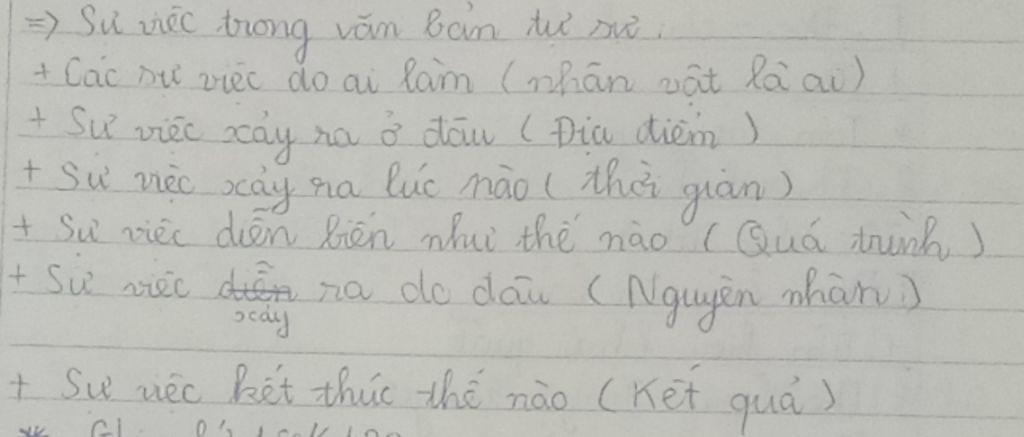 => Sự việc trong văn bản tự sự.
+ Các sự việc do ai làm (nhân vật là ai)
+ Sự việc xảy ra ở đâu (Địa điểm)
+ Sự việc xảy ra lúc nào (thời gian)
+ Sự việc diễn biến như thế nào (Quá trình)
+ Sự việc diễn ra do đâu (Nguyên nhân)
xảy
+ Sự việc kết thúc thế nào (Kết quả)